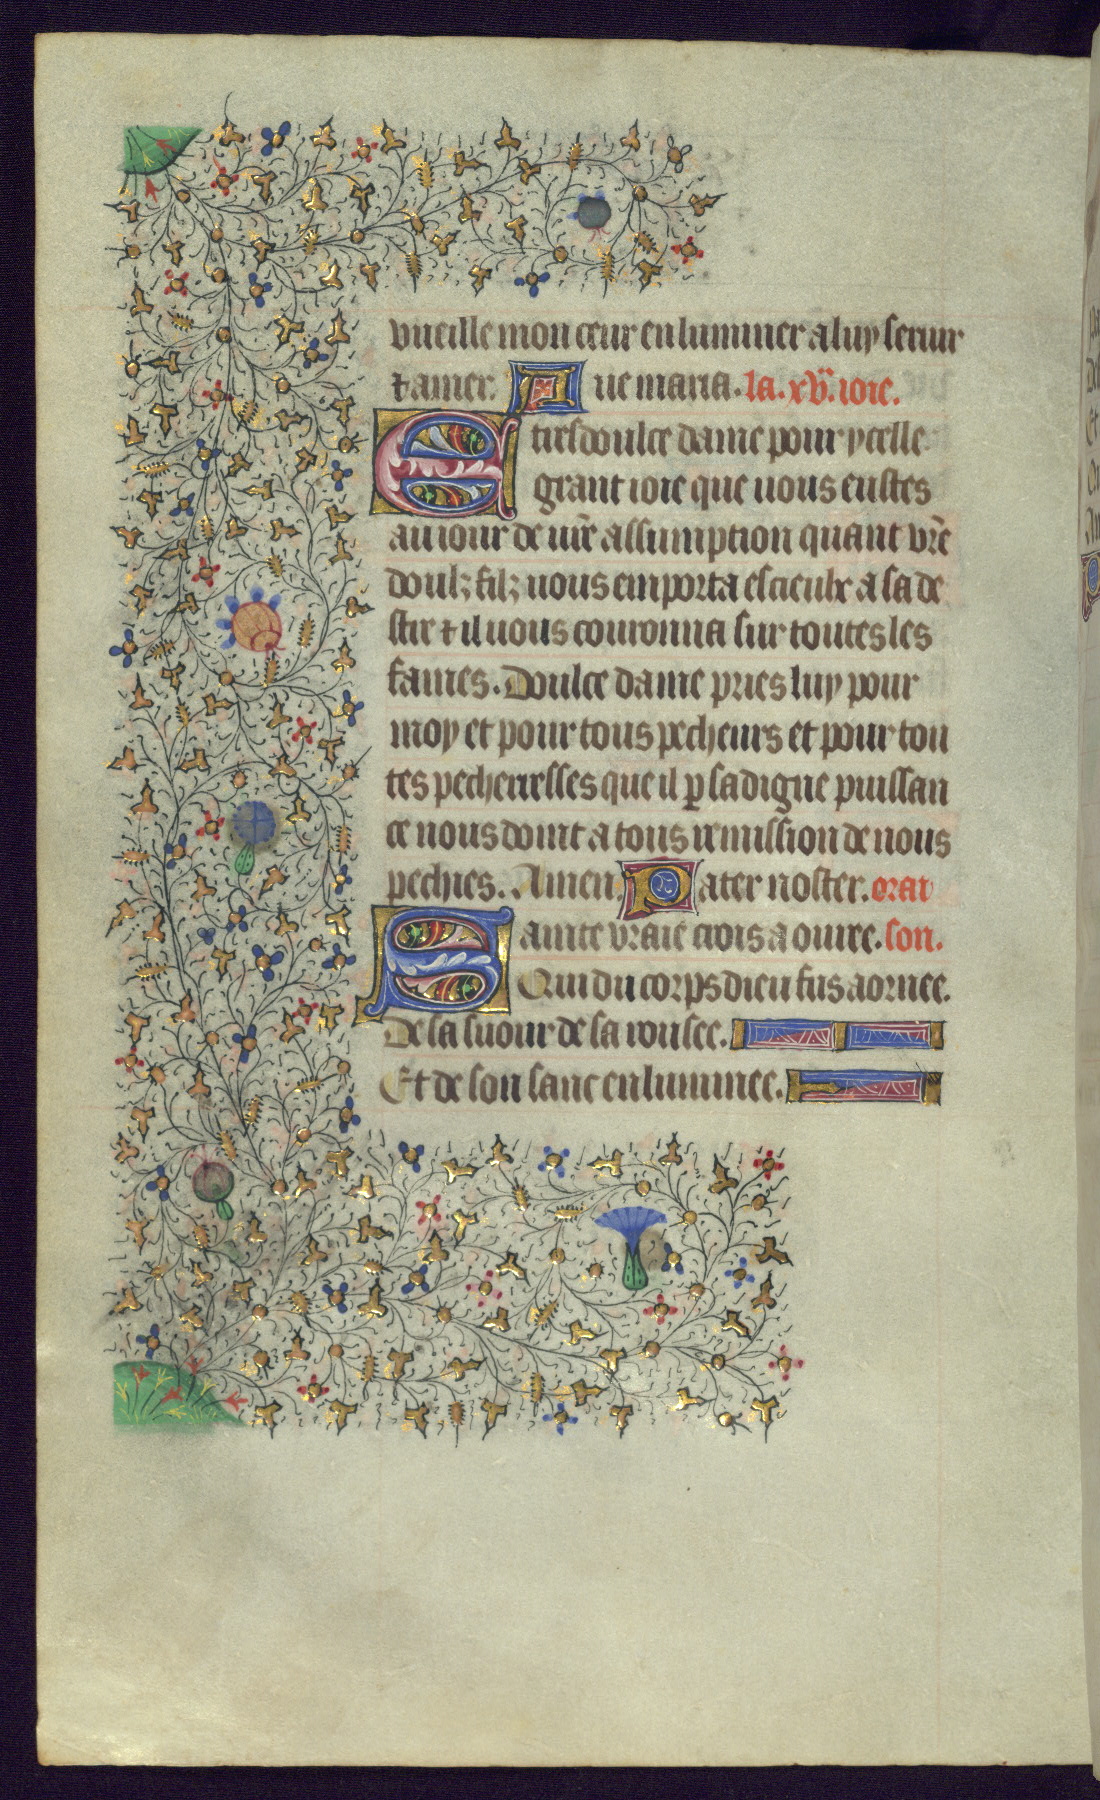 vueille mon cueur enluminer a luy seruir
⁊ amer. Aue maria. la .xv. ioie.
E tresdoulce dame pour ycelle
grant ioie que uous eustes
au iour de vr̄e assumption quant vr̄e
doulz filz uous emporta es cieulx a sa de
stre ⁊ il uous couronna sur toutes les
fames. Doulce dame pries luy pour
moy et pour tous pecheurs et pour tou
tes pecherresses que il ꝑ sa digne puissan
ce nous doint a tous remission de nous
pechies. Amen. Pater noster. orai
Sainte vraie crois aouree. son.
Qui du corps dieu fus aornee.
De la suour de sa rousee.
Et de son sanc enluminee.